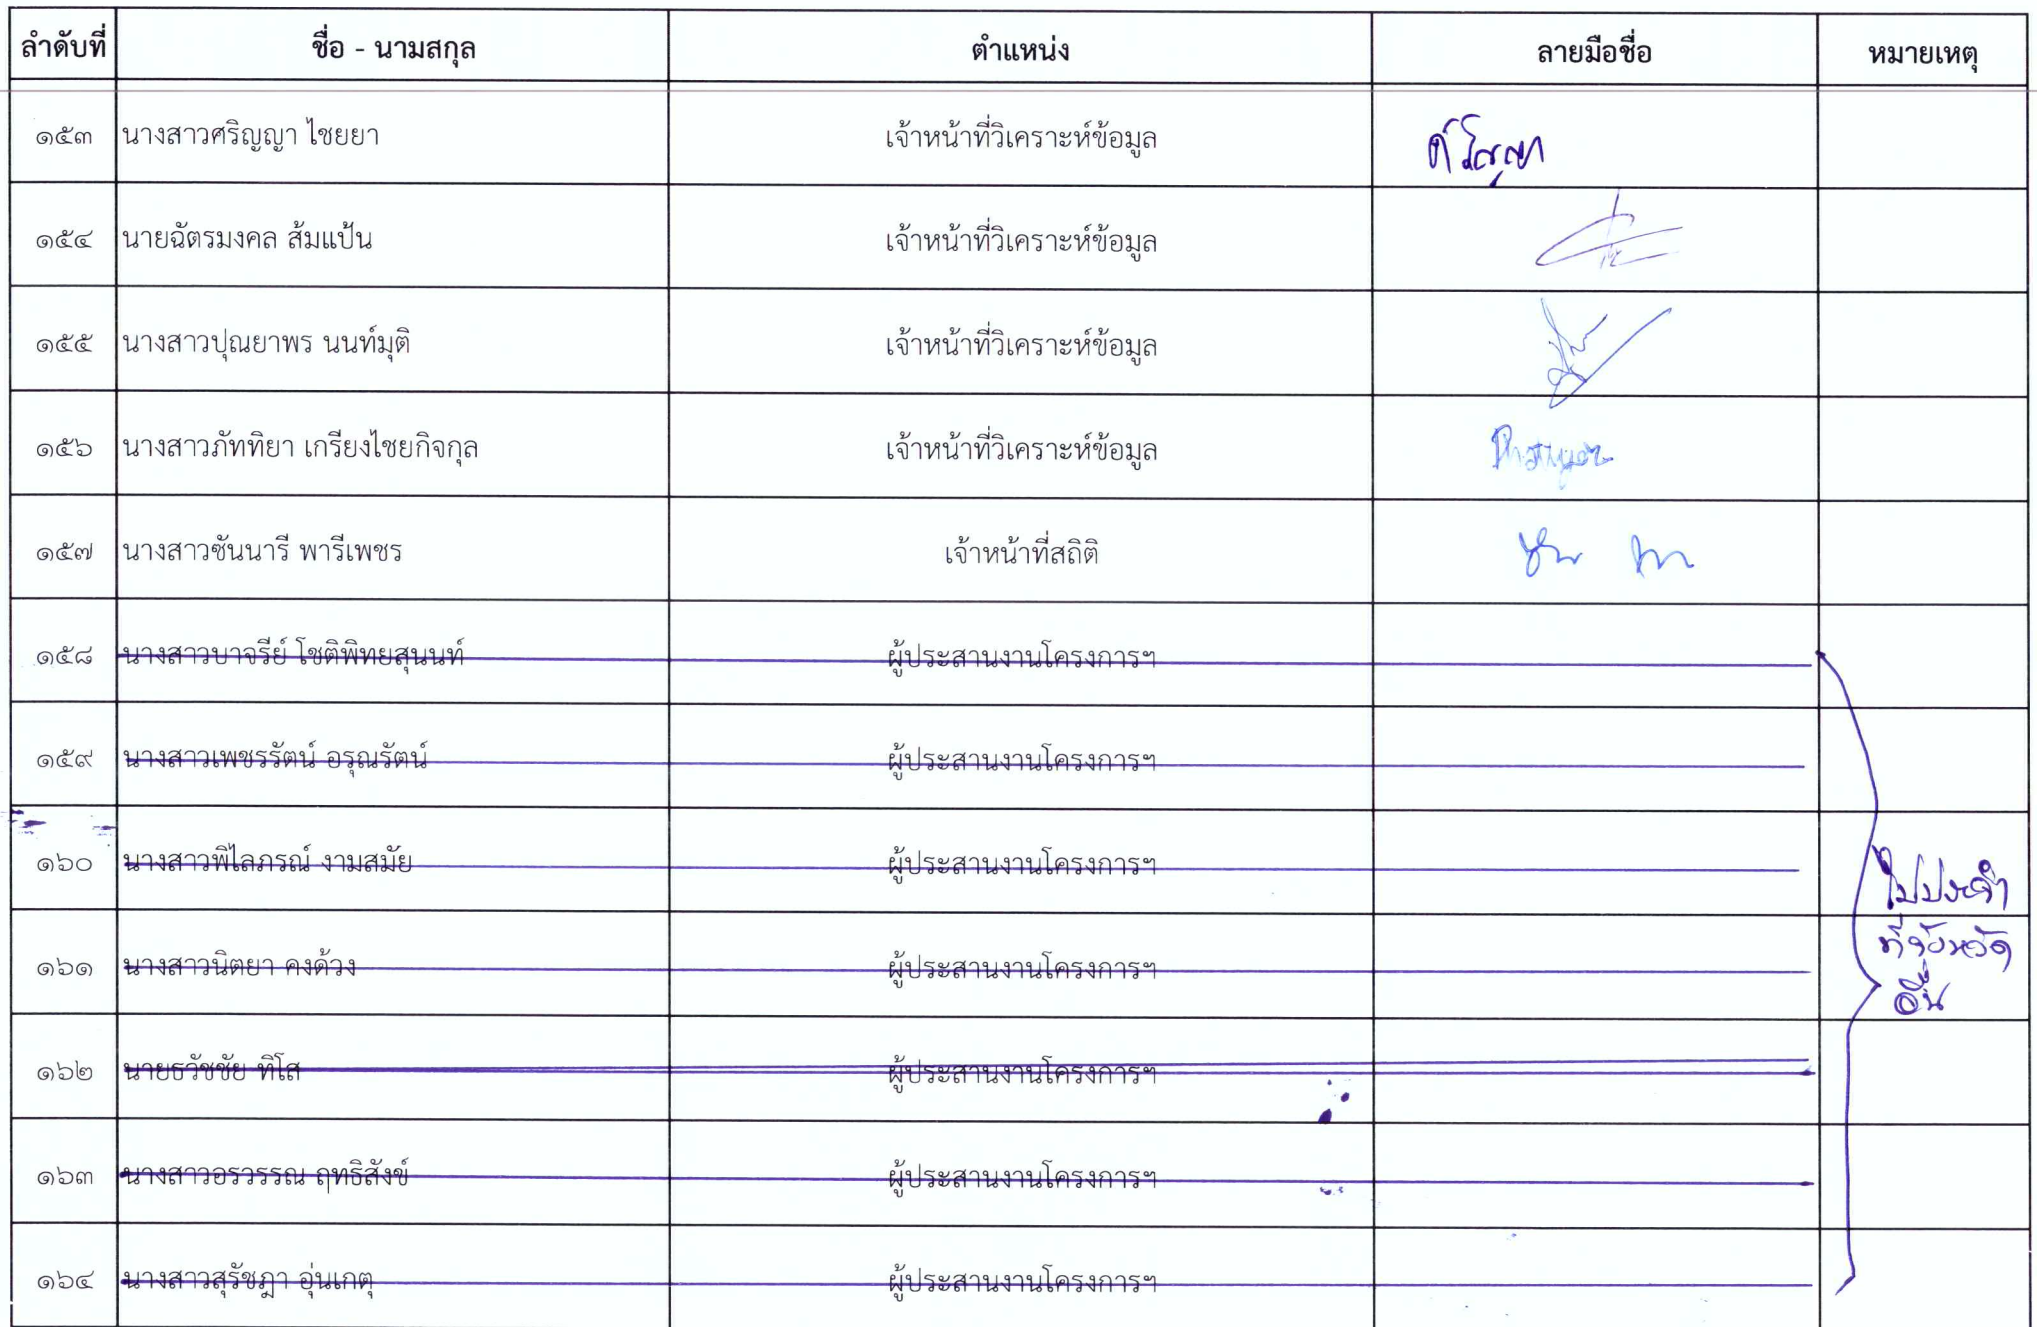 ลำดับที่ ชื่อ - นามสกุล ตำแหน่ง ลายมือชื่อ หมายเหตุ
๑๕๓ นางสาวศริญญา ไชยยา เจ้าหน้าที่วิเคราะห์ข้อมูล ศริญญา
๑๕๔ นายฉัตรมงคล ส้มแป้น เจ้าหน้าที่วิเคราะห์ข้อมูล
๑๕๕ นางสาวปุณยาพร นนท์มุติ เจ้าหน้าที่วิเคราะห์ข้อมูล
๑๕๖ นางสาวภัททิยา เกรียงไชยกิจกุล เจ้าหน้าที่วิเคราะห์ข้อมูล
๑๕๗ นางสาวซันนารี พารีเพชร เจ้าหน้าที่สถิติ
๑๕๘ นางสาวบาจรีย์ โชติพิทยสุนนท์ ผู้ประสานงานโครงการฯ
๑๕๙ นางสาวเพชรรัตน์ อรุณรัตน์ ผู้ประสานงานโครงการฯ
๑๖๐ นางสาวพิไลภรณ์ งามสมัย ผู้ประสานงานโครงการฯ ไปประจำ
๑๖๑ นางสาวนิตยา คงด้วง ผู้ประสานงานโครงการฯ ที่จังหวัด
อื่น
๑๖๒ นายธวัชชัย ทิโส ผู้ประสานงานโครงการฯ
๑๖๓ นางสาวอรวรรณ ฤทธิสังข์ ผู้ประสานงานโครงการฯ
๑๖๔ นางสาวสุรัชฎา อุ่นเกตุ ผู้ประสานงานโครงการฯ